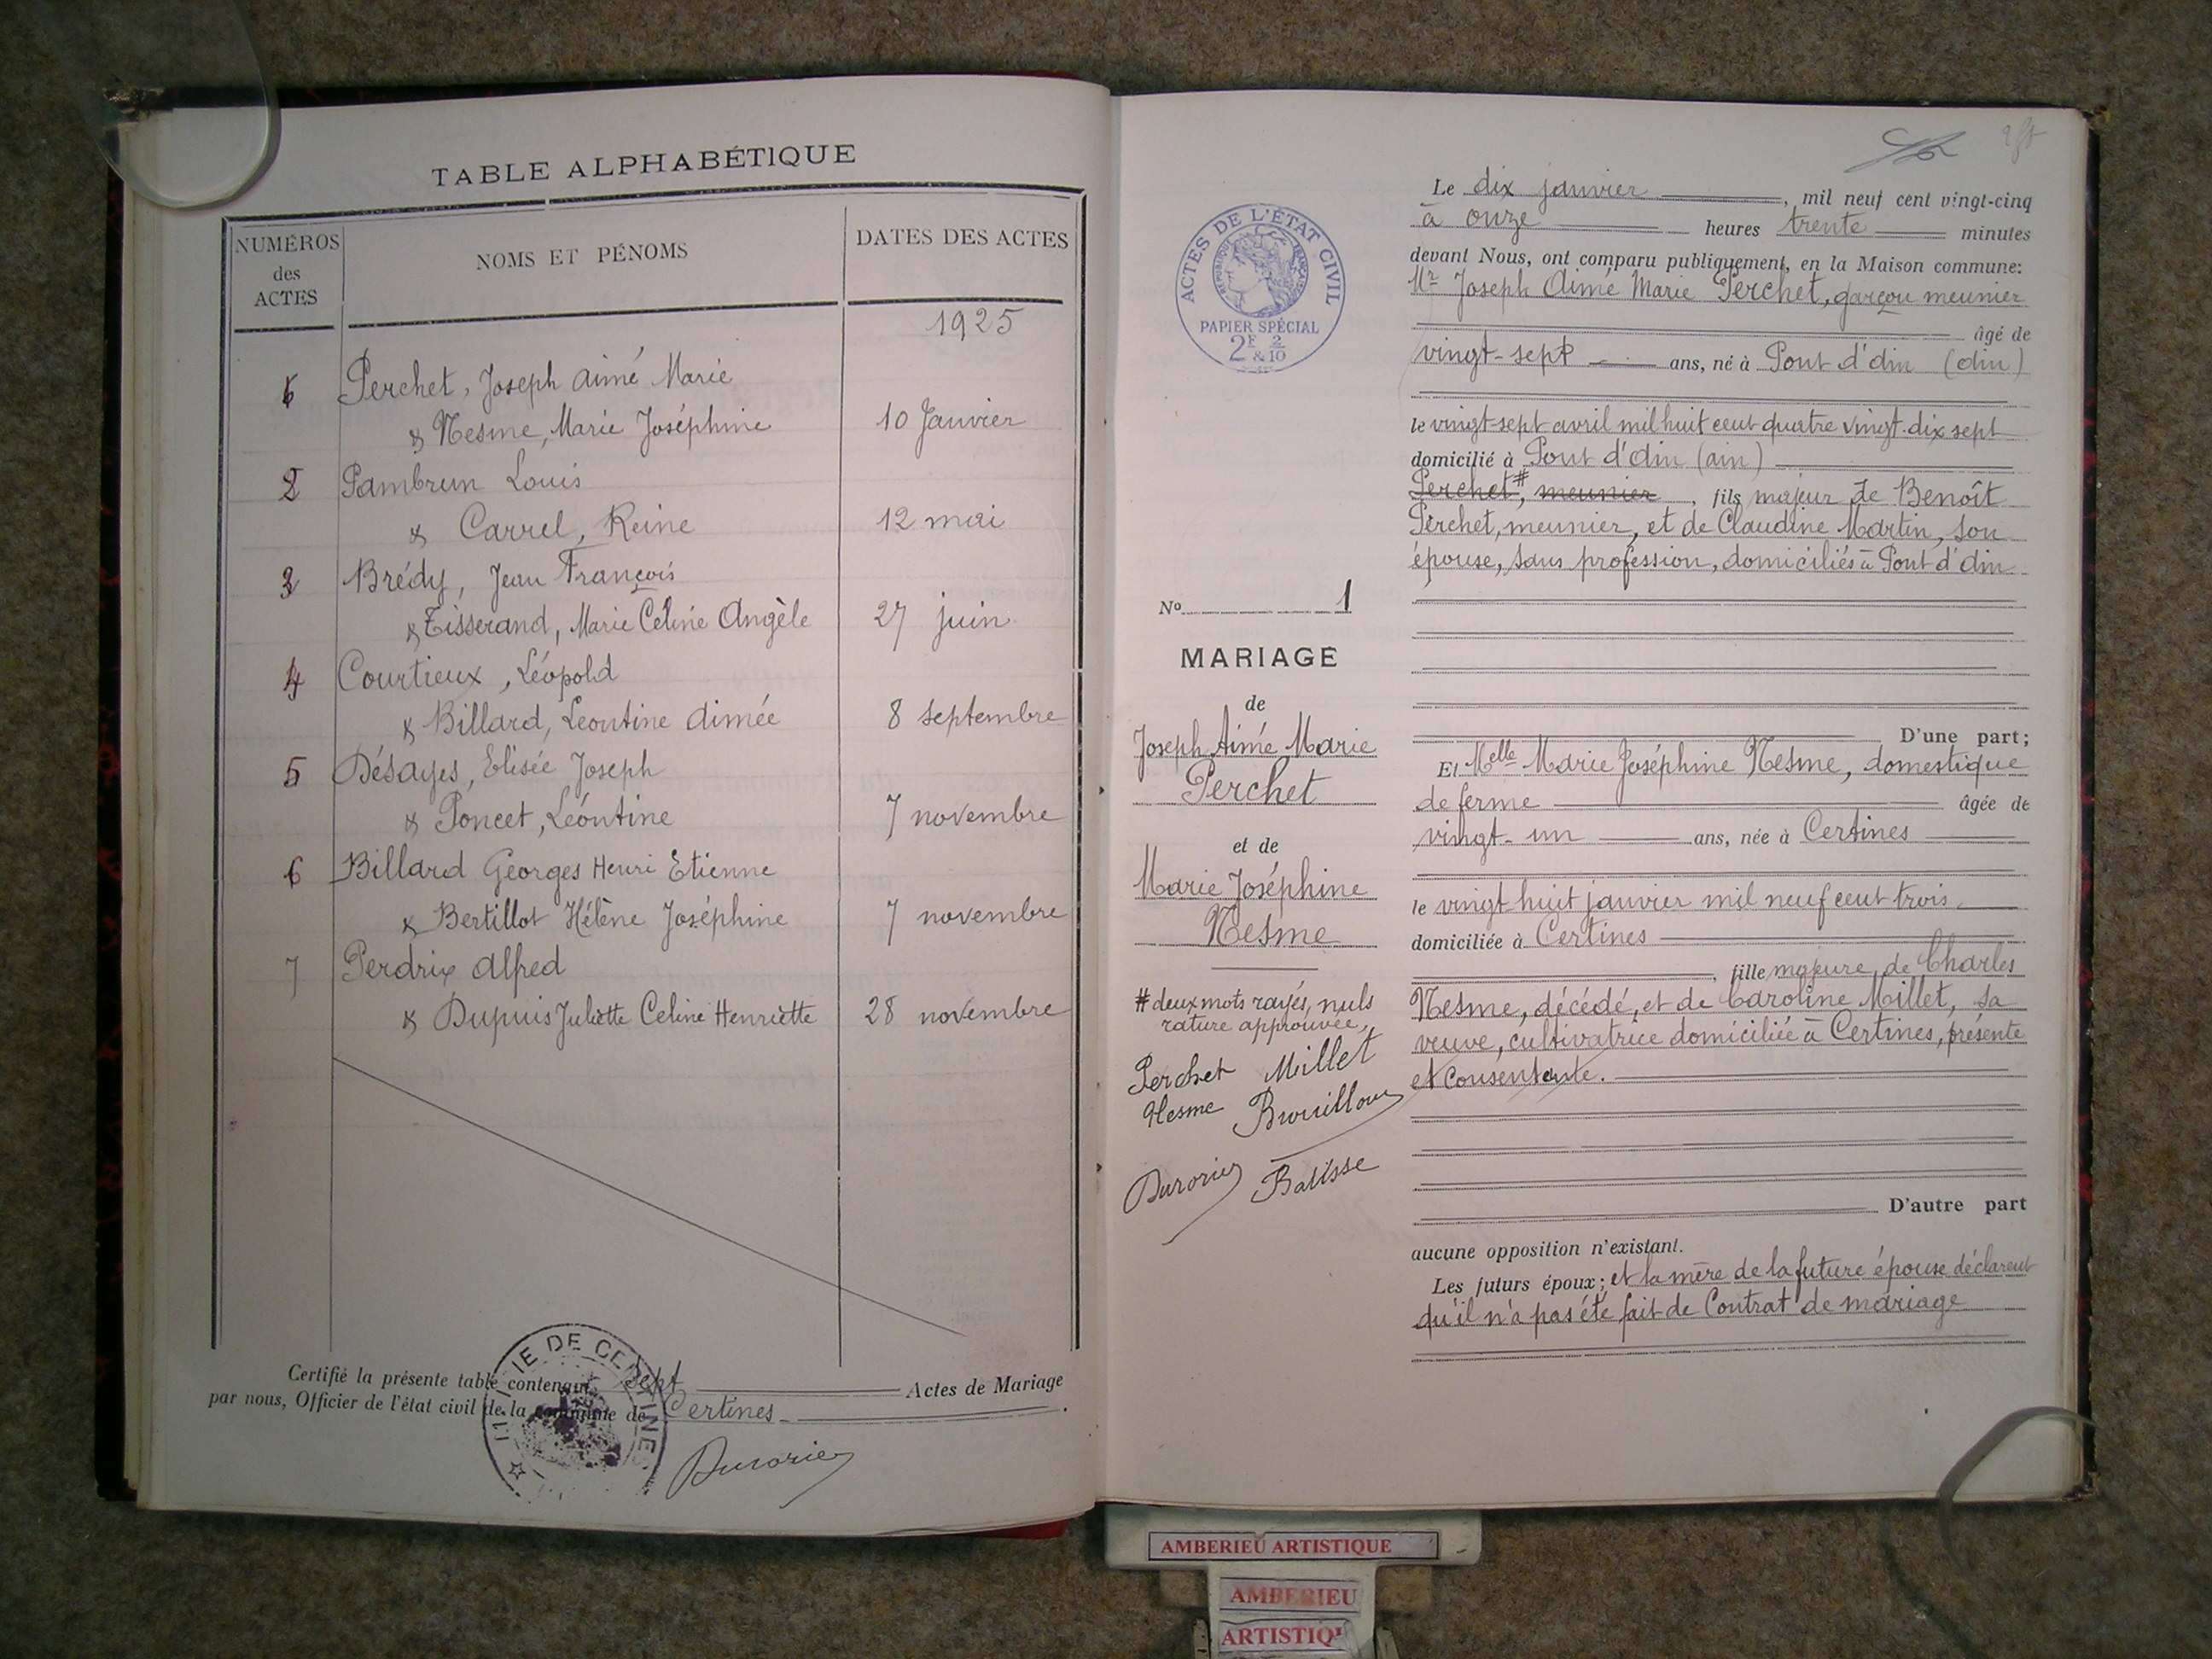 TABLE ALPHABÉTIQUE
NUMÉROS des ACTES
NOMS ET PÉNOMS
DATES DES ACTES
1925
Perchet, Joseph Aimé Marie
& Nesme, Marie Joséphine 10 Janvier
2 Pambrun Louis
& Carrel, Reine 12 mai
3 Brédy, Jean François
& Tisserand, Marie Céline Angèle 27 juin
4 Courtieux, Léopold
& Billard, Leontine Aimée 8 septembre
5 Désayes, Elisée Joseph
& Poncet, Léontine 7 novembre
6 Billard Georges Henri Etienne
& Bertillot Hélène Joséphine 7 novembre
7 Perdrix Alfred
& Dupuis Juliette Celine Henriette 28 novembre
Certifié la présente table contenant sept Actes de Mariage
par nous, Officier de l'état civil de la commune de Certines.
MAIRIE DE CERTINES
Durorier
ACTES DE L'ÉTAT CIVIL
RÉPUBLIQUE FRANÇAISE
PAPIER SPÉCIAL
2F 2 & 10
No 1
MARIAGE
de
Joseph Aimé Marie
Perchet
et de
Marie Joséphine
Nesme
# deux mots rayés, nuls
rature approuvée,
Perchet Millet
Nesme Brouilloux
Durorier Batisse
Le dix janvier, mil neuf cent vingt-cinq
à onze heures trente minutes
devant Nous, ont comparu publiquement, en la Maison commune:
Mr Joseph Aimé Marie Perchet, garçon meunier
âgé de
vingt-sept ans, né à Pont d'Ain (Ain)
le vingt-sept avril mil huit cent quatre vingt-dix sept
domicilié à Pont d'Ain (ain)
Perchet #, meunier, fils majeur de Benoît
Perchet, meunier, et de Claudine Martin, son
épouse, sans profession, domiciliés à Pont d'Ain
D'une part;
Et Melle Marie Joséphine Nesme, domestique
de ferme âgée de
vingt-un ans, née à Certines
le vingt huit janvier mil neuf cent trois.
domiciliée à Certines
, fille majeure de Charles
Nesme, décédé, et de Caroline Millet, sa
veuve, cultivatrice domiciliée à Certines, présente
et consentante.
D'autre part
aucune opposition n'existant.
Les futurs époux; et la mère de la future épouse déclarent
qu'il n'a pas été fait de Contrat de mariage
AMBERIEU ARTISTIQUE
AMBERIEU
ARTISTIQU